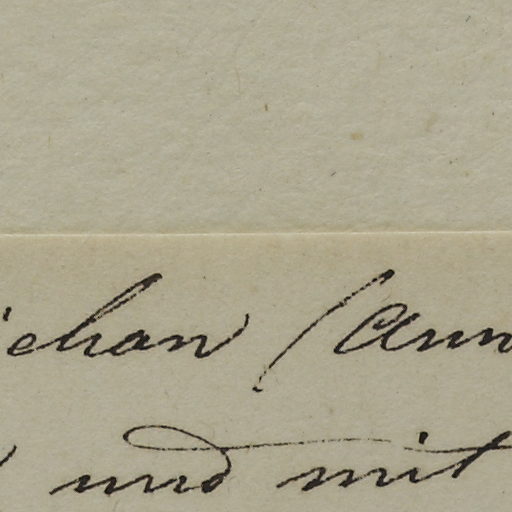 ichan (Ann
und mit